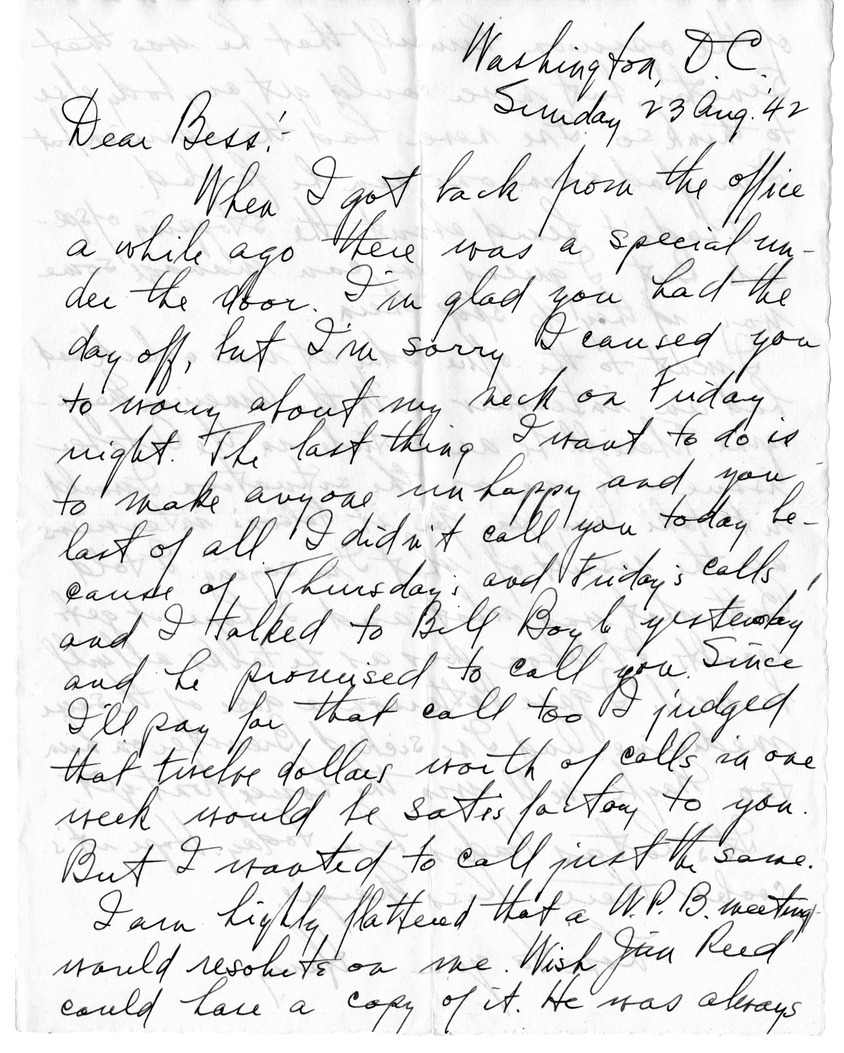 Washington, D.C.
Sunday 23 Aug. '42
Dear Bess:-
When I got back from the office
a while ago there was a special un-
der the door. I'm glad you had the
day off, but I'm sorry I caused you
to worry about my neck on Friday
night. The last thing I want to do is
to make anyone unhappy and you
last of all. I didn't call you today be-
cause of Thursday's and Friday's calls,
and I talked to Bill Boyle yesterday
and he promised to call you. Since
I'll pay for that call too I judged
that twelve dollars worth of calls in one
week would be satisfactory to you.
But I wanted to call just the same.
I am highly flattered that a W.P.B. meeting
would resolute on me. Wish Jim Reed
could have a copy of it. He was always